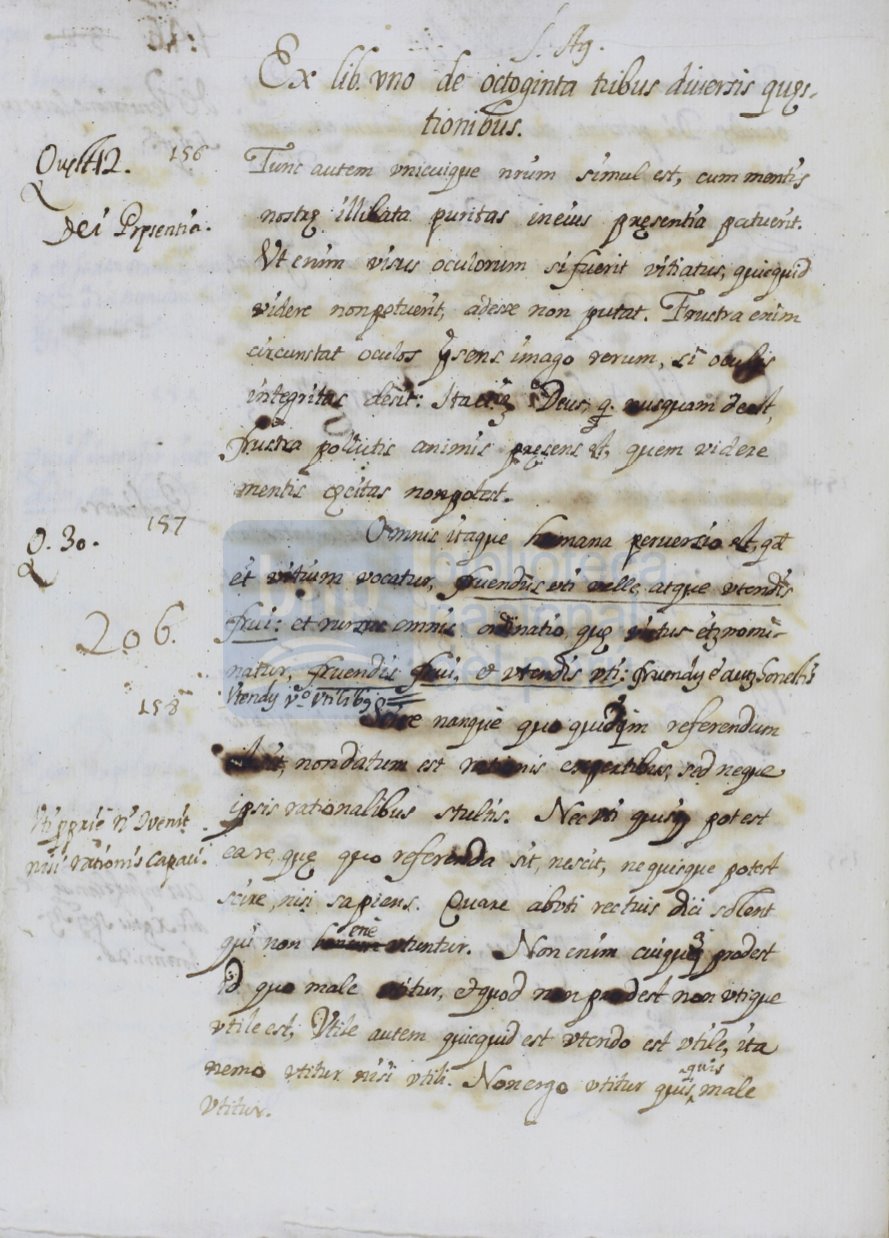 S. Ag.
Ex lib. vno de octoginta tribus diuersis quęs-
tionibus.
Quęst. 12. 156
Tunc autem vnicuique nrum simul est, cum mentis
nostrę illibata puritas in eius pręsentia patuerit.
Dei Pręsentia.
Vt enim visus oculorum si fuerit vitiatus, quicquid
videre non potuerit, adesse non putat. Frustra enim
circunstat oculos p̨sens imago rerum, si oculis
integritas desit: Ita etiã Deus, q. nusquam deest,
frustra pollutis animis pręsens est, quem videre
mentis cęcitas non potest.
Q. 30. 157
Omnis itaque humana peruersio est, qđ
et vitium vocatur, fruendis vti velle, atque vtendis
frui: et rursus omnis ordinatio, quę virtus etiã nomi-
206.
natur, fruendis frui, & vtendis vti: fruendũ ẽ autẽ honestis
Vtendũ vº vtilibꝯ
158
Scire nanque quo quidq̃ referendum
sit, non datum est rationis expertibus, sed neque
ipsis rationalibus stultis. Nec vti quisq̃ potest
Vti ppriẽ nõ ꝯvenit
nisi rationis capaci.
ea re, quę quo referenda sit, nescit, nequisque potest
scire, nisi sapiens. Quare abuti rectius dici solent
qui non bene vtuntur. Non enim cuiquã prodest
id quo male vtitur, et quod non prodest non vtique
vtile est, Vtile autem quicquid est vtendo est vtile, ita
nemo vtitur nisi vtili. Non ergo vtitur quisquis male
vtitur.
biblioteca
nacional
del perú